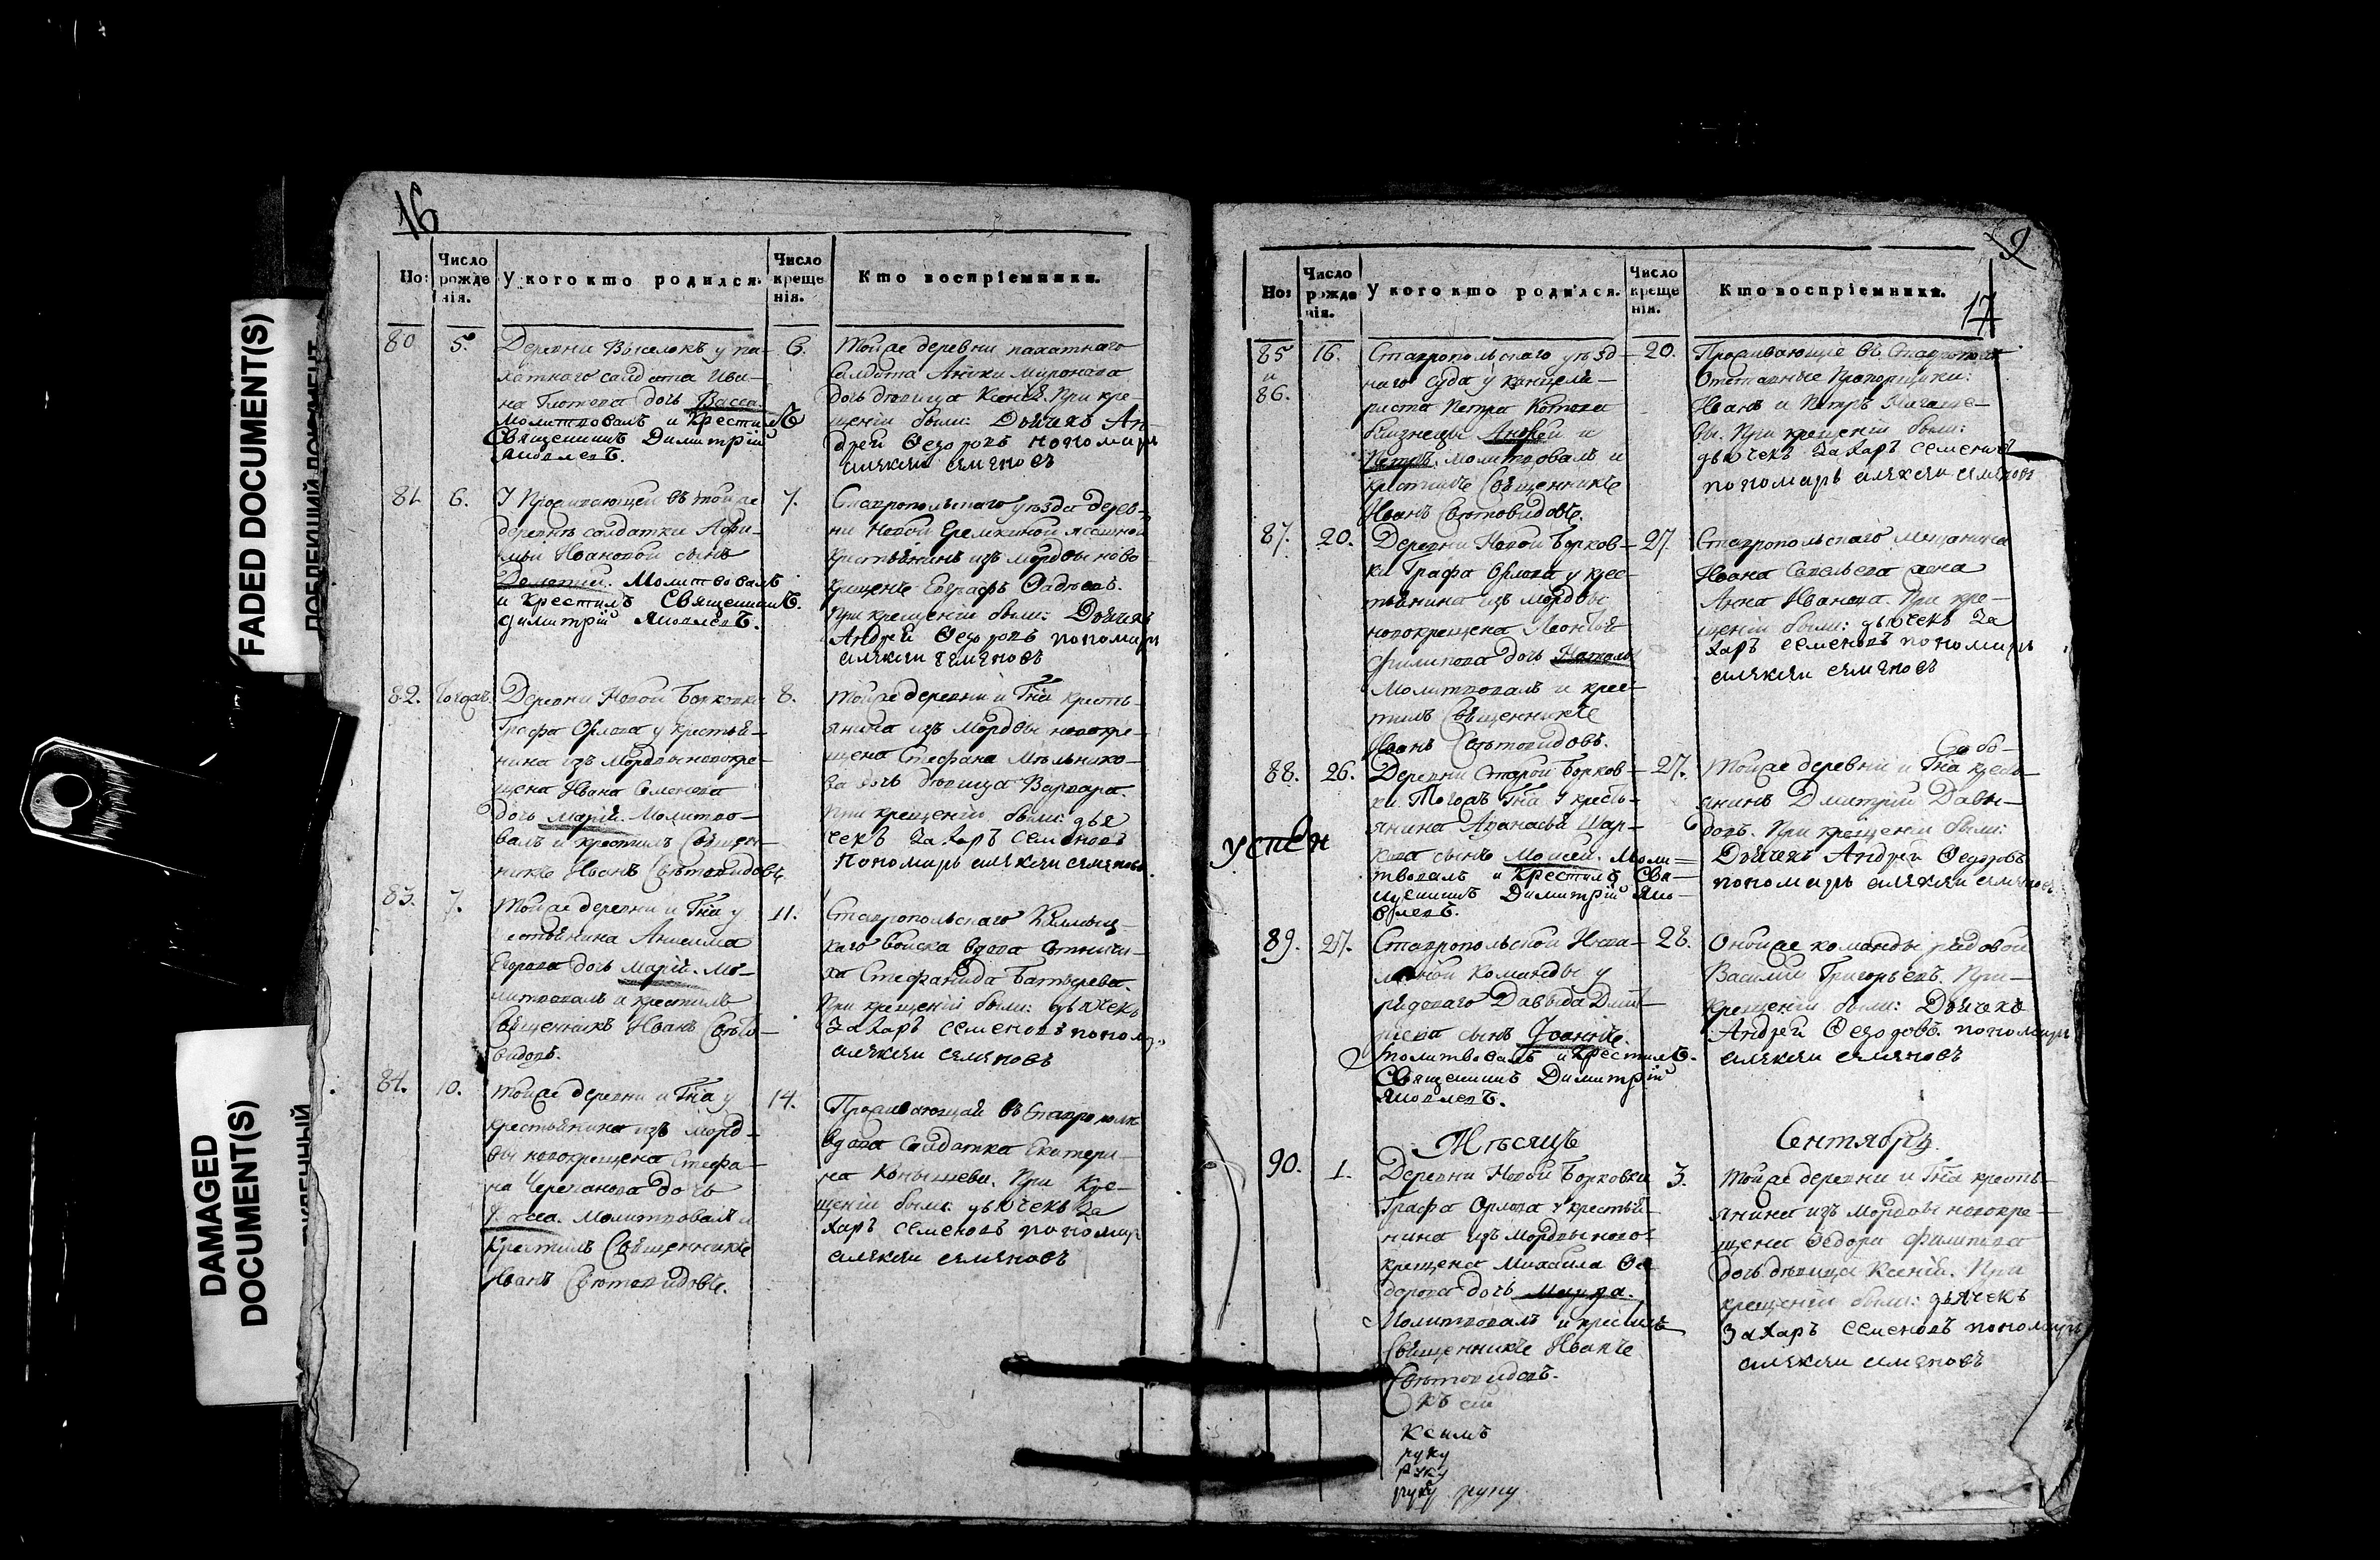 FADED DOCUMENT(S)
DAMAGED
DOCUMENT(S)
16
Но:
Число
рожде
нія.
У кого кто родился.
Число
креще
нія.
Кто воспріемники.
80
5.
Деревни Выселокъ у па-
хатнаго солдата Ива-
на Глотова дочь Васса.
Молитвовалъ и Крестилъ
Священникъ Димитрій
Яковлевъ.
6.
Тойже деревни пахатнаго
Солдата Аники Миронова
дочь девица Ксенія. При кре-
щеніи были: Дьячекъ Ан-
дрей Ѳедоровъ пономарь
алексеи семеновъ
81
6.
У Проживающей въ тойже
деревнѣ солдатки Афи-
мьи Ивановой сынъ
Молитвовалъ
и Крестилъ Священникъ
Димитрій Яковлевъ.
7.
Ставропольскаго уѣзда дерев-
ни Новой Еремкиной ясашной
крестьянинъ изъ мордвы ново-
крещенъ Евграфъ
При крещеніи были: Дьячекъ
Андрей Ѳедоровъ пономарь
алексеи семеновъ
82.
Тогожъ.
Деревни Новой Борковки
Графа Орлова у крестья-
нина изъ мордвы новокре-
щена Ивана Семенова
дочь Марія. Молитво-
валъ и крестилъ Священ-
никъ Иванъ Свѣтовидовъ.
8.
Тойже деревни и Гна кресть-
янина изъ мордвы новокре-
щена Стефана Мельнико-
ва дочь девица Варвара.
При крещеніи были: дья
чекъ Захаръ Семеновъ
Пономарь алексеи семеновъ
83.
7.
Тойже деревни и Гна у
крестьянина Анисима
Егорова дочь Марія. Мо-
литвовалъ и крестилъ
Священникъ Иванъ Свѣто-
видовъ.
11.
Ставропольскаго Калмыц-
каго войска вдова сотничи-
ха Стефанида Батырева.
При крещеніи были: дьячекъ
Захаръ Семеновъ пономарь
алексеи семеновъ
84.
10.
Тойже деревни и Гна у
крестьянина изъ морд-
вы новокрещена Стефа-
на Черепанова дочь
Молитвовалъ и
крестилъ Священникъ
Иванъ Свѣтовидовъ.
14.
Проживающая въ Ставрополѣ
вдова солдатка Екатери-
на Конышева. При Кре-
щеніи были: дьячекъ За
харъ Семеновъ пономарь
алексеи семеновъ
17
Но:
Число
рожде
нія.
У кого кто родился.
Число
креще
нія.
Кто воспріемники.
85
и
86.
16.
Ставропольскаго уѣзд-
наго суда у канцеля-
риста Петра Котова
близнецы Андрей и
Петръ. Молитвовалъ и
крестилъ Священникъ
Иванъ Свѣтовидовъ.
20.
Проживающіе въ Ставрополѣ
Отставные Прапорщики:
Иванъ и Петръ
При крещеніи были:
дьячекъ Захаръ Семеновъ
пономарь алексеи семеновъ
87.
20.
Деревни Новой Борков-
ки Графа Орлова у крес-
тьянина изъ мордвы
новокрещена Леонтья
Филипова дочь Наталья
Молитвовалъ и крес-
тилъ Священникъ
Иванъ Свѣтовидовъ.
27.
Ставропольскаго Мещанина
Ивана Савельева жена
Анна Иванова. При кре-
щеніи были: дьячекъ За
харъ Семеновъ пономарь
алексеи семеновъ
88.
26.
Деревни Старой Борков-
ки Тогожъ Гна у кресть-
янина Афанасья Шар-
кова сынъ Моисей. Моли-
твовалъ и Крестилъ Свя-
щенникъ Димитрій Яко-
влевъ.
27.
Тойже деревни и Гна кресть-
янинъ Дмитрій Давы-
довъ. При крещеніи были:
Дьячекъ Андрей Ѳедоровъ
пономарь алексеи семеновъ
успен
89.
27.
Ставропольской Инва-
лидной Команды у
рядоваго Давыда Дмит-
ріева сынъ Іоаннъ.
Молитвовалъ и Крестилъ
Священникъ Димитрій
Яковлевъ.
28.
Оной же команды рядовой
Василій Григорьевъ. При
крещеніи были: Дьячекъ
Андрей Ѳедоровъ. пономарь
алексеи семеновъ
Мѣсяцъ
Сентябрь
90.
1.
Деревни Новой Борковки
Графа Орлова у крестья-
нина изъ мордвы ново-
крещена Михаила Ѳе-
дорова дочь Марѳа.
Молитвовалъ и крестилъ
Священникъ Иванъ
Свѣтовидовъ.
3.
Тойже деревни и Гна кресть-
янина изъ мордвы новокре-
щена Ѳедора Филипова
дочь девица Ксенія. При
крещеніи были: дьячекъ
Захаръ Семеновъ пономарь
алексеи семеновъ
руку
руку
руку руку